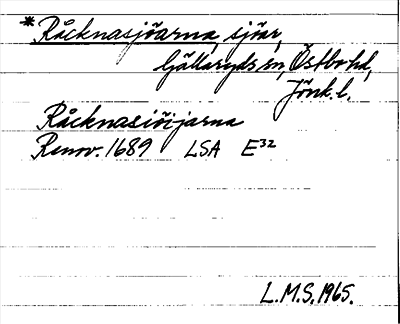 *Råcknasjöarna, sjöar,
Gällaryds sn, Östbo hd,
Jönk. l.
Råcknasiöijarna
Renov. 1689 LSA E32
L.M.S. 1965.